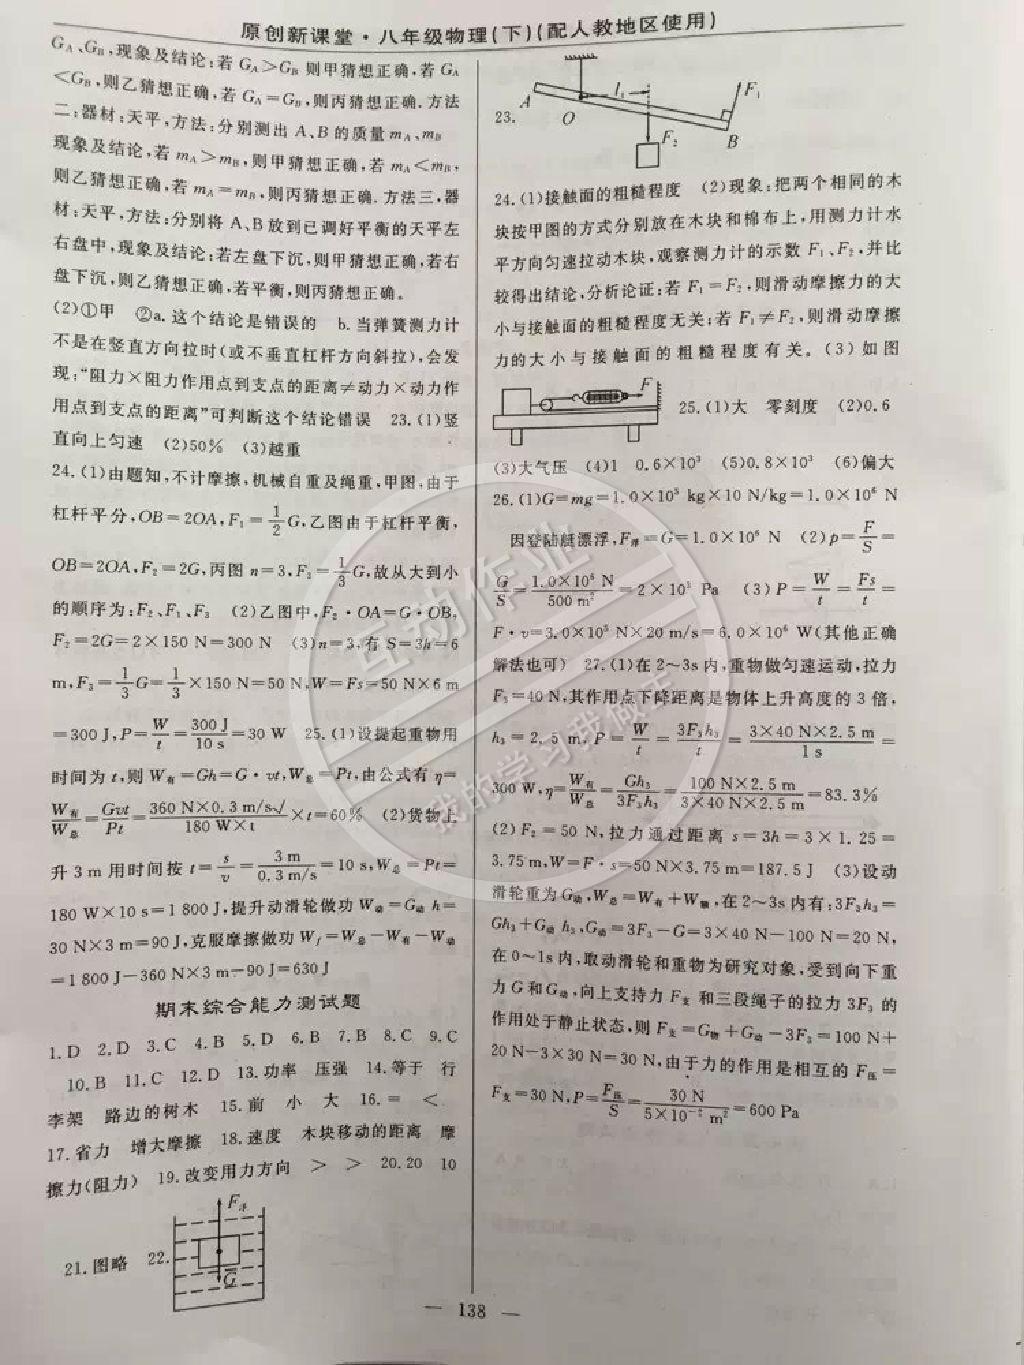 原创新课堂·八年级物理(下)(配人教地区使用)
G_A、G_B,现象及结论:若 G_A>G_B 则甲猜想正确,若 G_A
<G_B,则乙猜想正确,若 G_A=G_B,则丙猜想正确.方法
二:器材:天平,方法:分别测出 A、B 的质量 m_A、m_B
现象及结论,若 m_A>m_B,则甲猜想正确,若 m_A<m_B,
则乙猜想正确,若 m_A=m_B,则丙猜想正确.方法三,器
材:天平,方法:分别将 A、B 放到已调好平衡的天平左
右盘中,现象及结论:若左盘下沉,则甲猜想正确,若右
盘下沉,则乙猜想正确,若平衡,则丙猜想正确。
(2)①甲 ②a.这个结论是错误的 b.当弹簧测力计
不是在竖直方向拉时(或不垂直杠杆方向斜拉),会发
现:“阻力×阻力作用点到支点的距离≠动力×动力作
用点到支点的距离”可判断这个结论错误 23.(1)竖
直向上匀速 (2)50% (3)越重
24.(1)由题知,不计摩擦,机械自重及绳重,甲图,由于
杠杆平分,OB=2OA,F₁=1/2G,乙图由于杠杆平衡,
OB=2OA,F₂=2G,丙图 n=3,F₃=1/3G,故从大到小
的顺序为:F₂、F₁、F₃ (2)乙图中,F₂·OA=G·OB,
F₂=2G=2×150 N=300 N (3)n=3,有 S=3h=6
m,F₃=1/3G=1/3×150 N=50 N,W=Fs=50 N×6 m
=300 J,P=W/t=300 J/10 s=30 W 25.(1)设提起重物用
时间为 t,则 W有=Gh=G·vt,W总=Pt,由公式有 η=
W有/W总=Gvt/Pt=360 N×0.3 m/s/180 W×t×t=60% (2)货物上
升 3 m 用时间按 t=s/v=3 m/0.3 m/s=10 s,W总=Pt=
180 W×10 s=1 800 J,提升动滑轮做功 W动=G动 h=
30 N×3 m=90 J,克服摩擦做功 W_f=W总-W有-W动
=1 800 J-360 N×3 m-90 J=630 J
期末综合能力测试题
1.D 2.D 3.C 4.B 5.D 6.B 7.B 8.C 9.C
10.B 11.C 12.D 13.功率 压强 14.等于 行
李架 路边的树木 15.前 小 大 16.= <
17.省力 增大摩擦 18.速度 木块移动的距离 摩
擦力(阻力) 19.改变用力方向 > > 20.20 10
21.图略 22.
F浮
G
23.
A
O
l₁
F₁
F₂
B
24.(1)接触面的粗糙程度 (2)现象:把两个相同的木
块按甲图的方式分别放在木块和棉布上,用测力计水
平方向匀速拉动木块,观察测力计的示数 F₁、F₂,并比
较得出结论,分析论证:若 F₁=F₂,则滑动摩擦力的大
小与接触面的粗糙程度无关;若 F₁≠F₂,则滑动摩擦
力的大小与接触面的粗糙程度有关。(3)如图
F
25.(1)大 零刻度 (2)0.6
(3)大气压 (4)1 0.6×10³ (5)0.8×10³ (6)偏大
26.(1)G=mg=1.0×10⁵ kg×10 N/kg=1.0×10⁶ N
因登陆艇漂浮,F浮=G=1.0×10⁶ N (2)p=F/S=
G/S=1.0×10⁶ N/500 m²=2×10³ Pa (3)P=W/t=Fs/t=
F·v=3.0×10⁵ N×20 m/s=6.0×10⁶ W(其他正确
解法也可) 27.(1)在 2~3s 内,重物做匀速运动,拉力
F₃=40 N,其作用点下降距离是物体上升高度的 3 倍,
h₃=2.5 m,P=W/t=3F₃h₃/t=3×40 N×2.5 m/1 s=
300 W,η=W有/W总=Gh₃/3F₃h₃=100 N×2.5 m/3×40 N×2.5 m=83.3%
(2)F₂=50 N,拉力通过距离 s=3h=3×1.25=
3.75 m,W=F·s=50 N×3.75 m=187.5 J (3)设动
滑轮重为 G动,W总=W有+W额,在 2~3s 内有:3F₃h₃=
Gh₃+G动 h₃,G动=3F₃-G=3×40 N-100 N=20 N,
在 0~1s 内,取动滑轮和重物为研究对象,受到向下重
力 G 和 G动,向上支持力 F支 和三段绳子的拉力 3F₁ 的
作用处于静止状态,则 F支=G物+G动-3F₁=100 N+
20 N-3×30 N=30 N,由于力的作用是相互的 F压=
F支=30 N,P=F压/S=30 N/5×10⁻² m²=600 Pa
— 138 —
互动作业
我的学习我做主